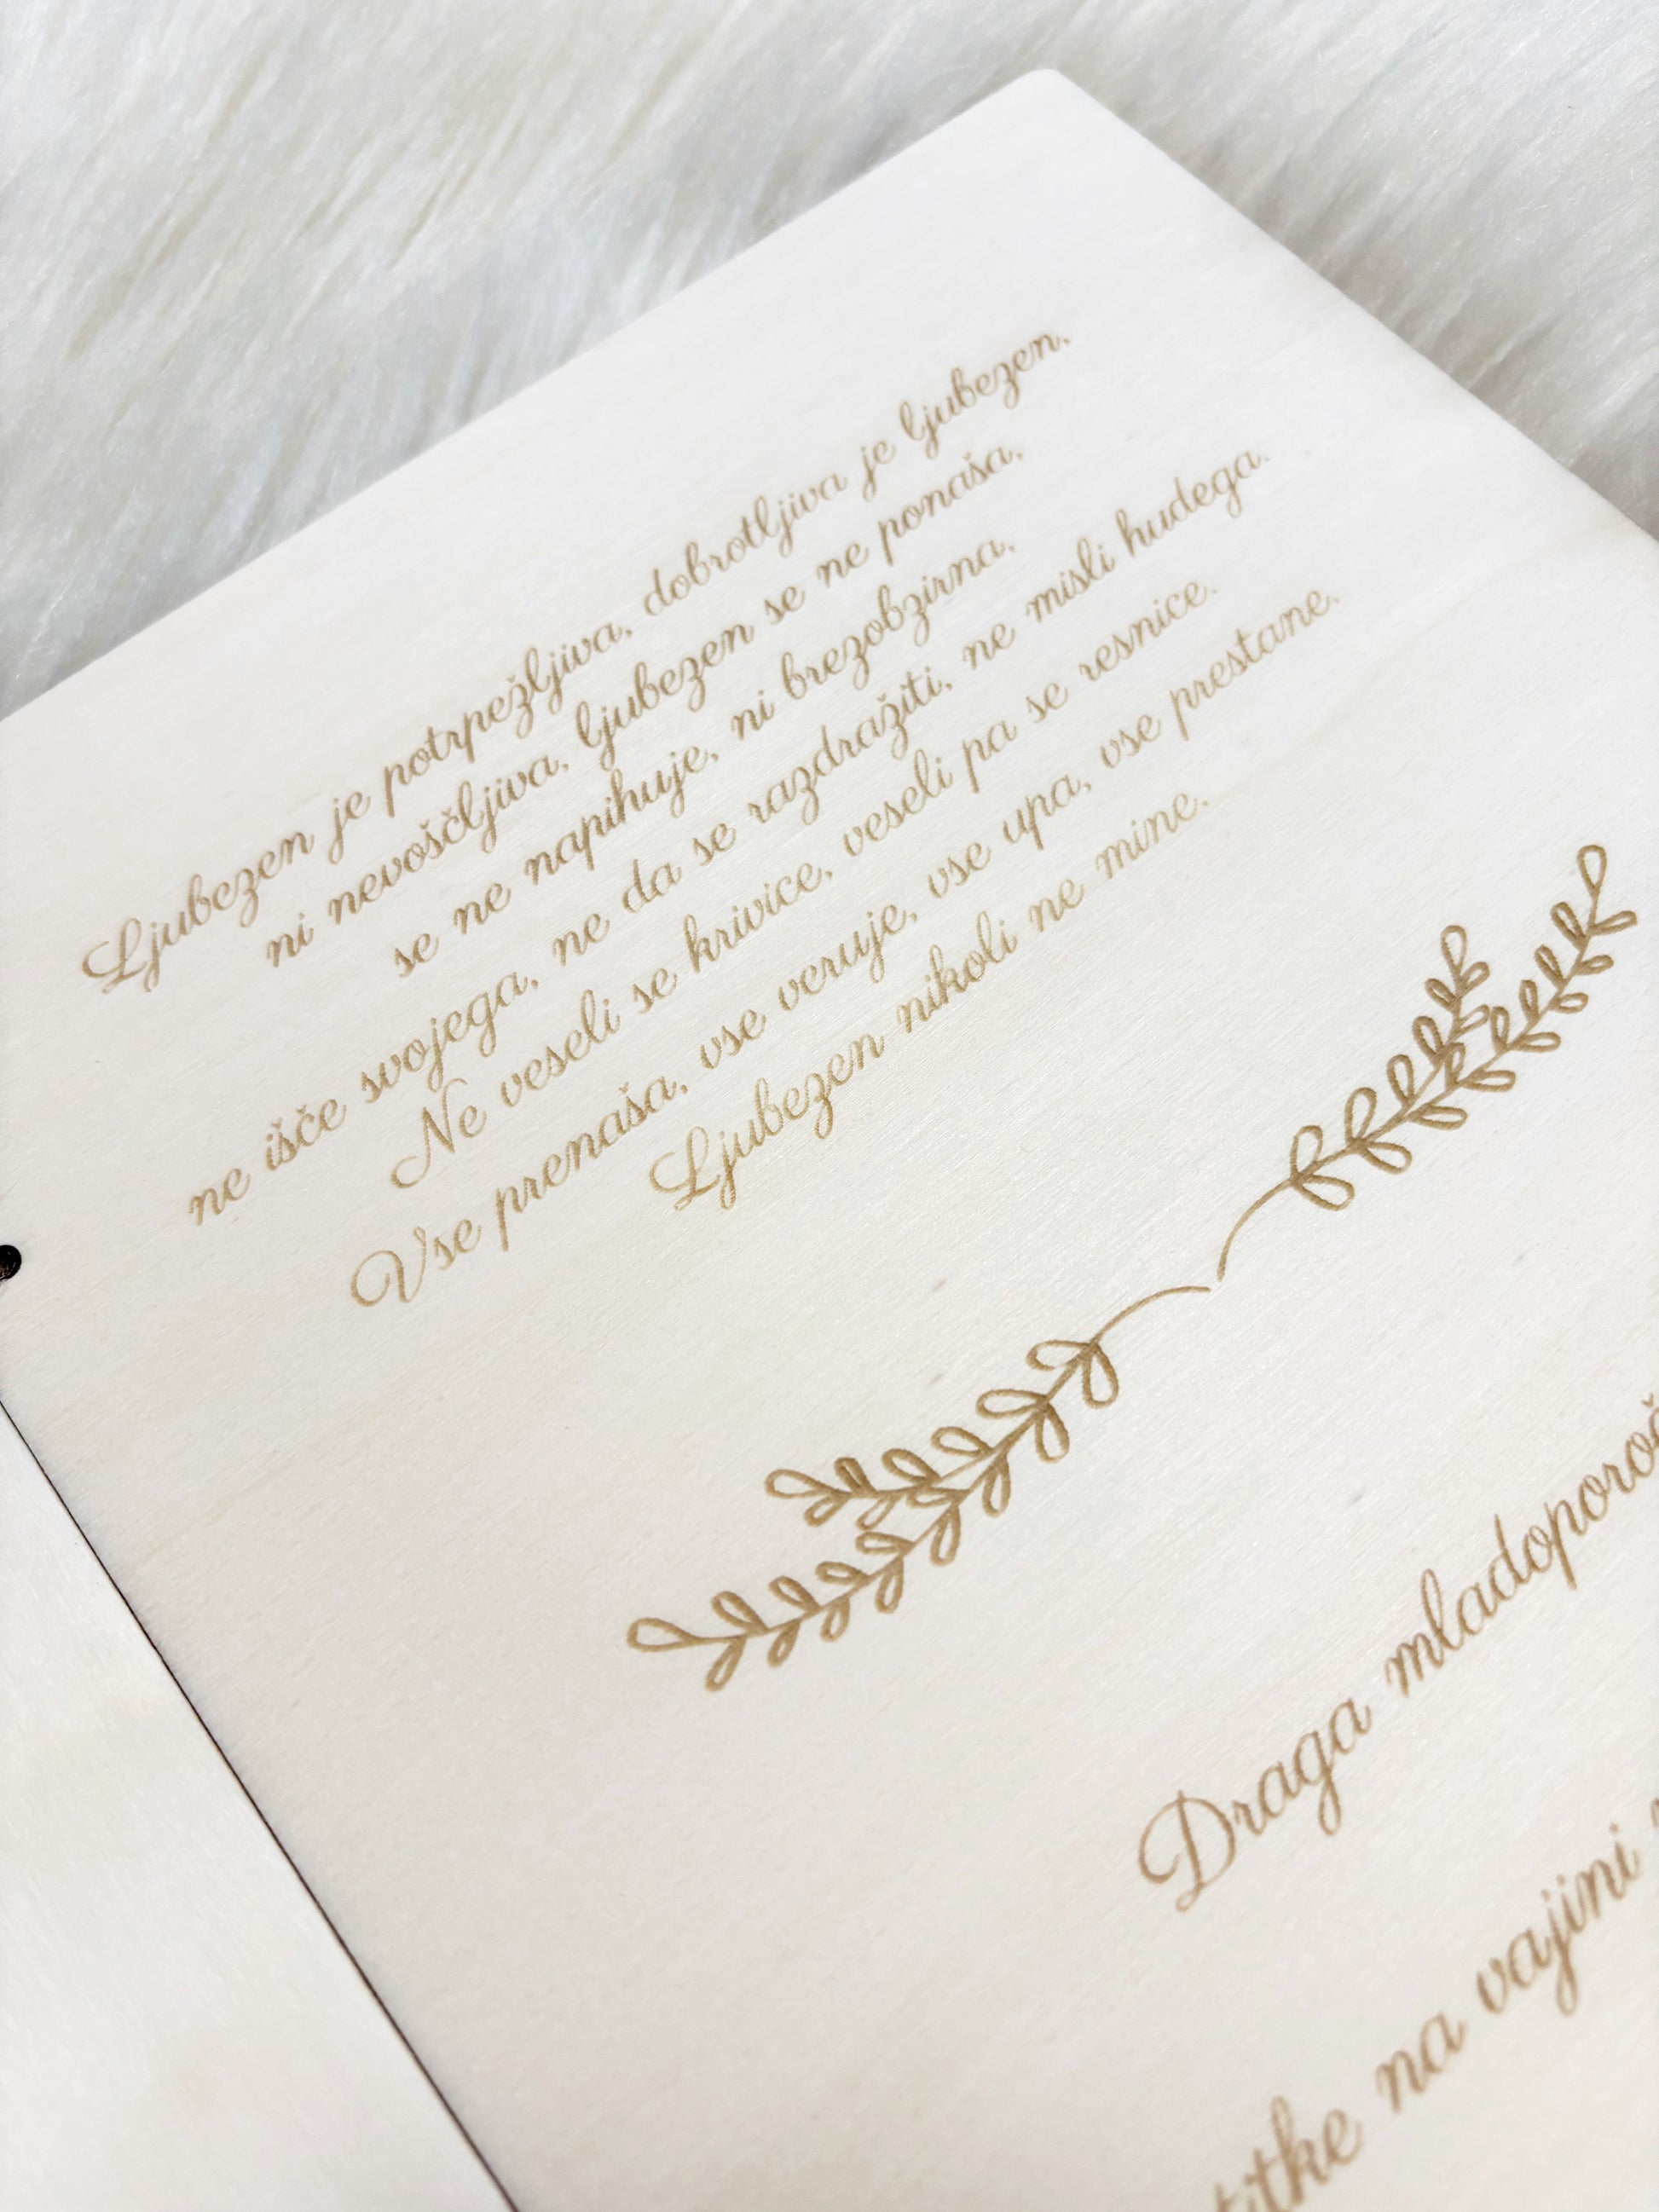 Ljubezen je potrpežljiva, dobrotljiva je ljubezen,
ni nevoščljiva, ljubezen se ne ponaša,
se ne napihuje, ni brezobzirna,
ne išče svojega, ne da se razdražiti, ne misli hudega.
Ne veseli se krivice, veseli pa se resnice.
Vse prenaša, vse veruje, vse upa, vse prestane.
Ljubezen nikoli ne mine.
Draga
na vajini